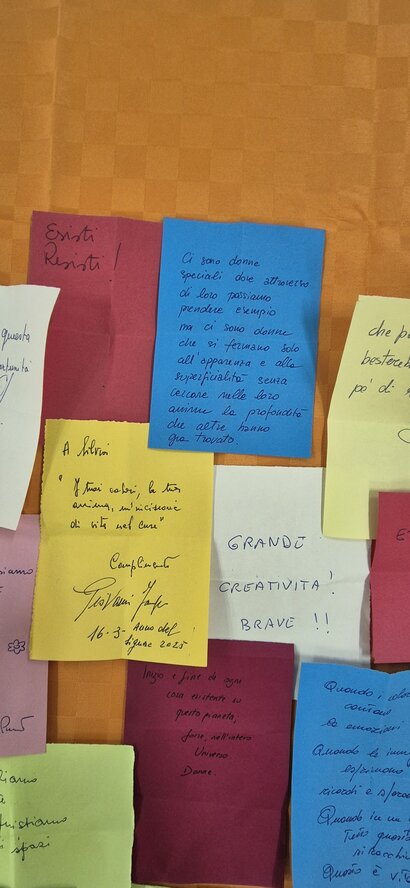 Esisti
Resisti!
Ci sono donne
speciali dove attraverso
di loro possiamo
prendere esempio
ma ci sono donne
che si fermano solo
all'apparenza e alla
superficialità senza
cercare nelle loro
anime la profondità
che altre hanno
già trovato.
questa
che p
bastereb
po' di
A Silvia
"I tuoi colori, la tua
anima,
di vita nel cuore"
Complimenti
Giovanni
16-3- Anno del
Signore 2025
GRANDE
CREATIVITA'!
BRAVE !!
E
siamo
Inizio e fine di ogni
cosa esistente su
questo pianeta,
forse, nell'intero
Universo
Donne.
Quando i
le emozioni
Quando le imm
esprimono
ricordi e
Quando in un
Tutto questo
si racchiu
Questo è
spazi